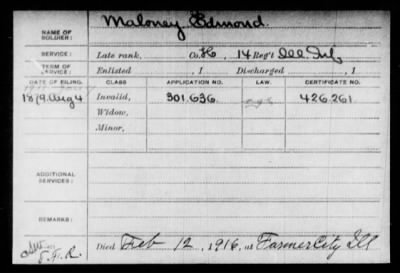 Maloney Edmond.
NAME OF SOLDIER:
SERVICE: Late rank, Co. H, 14 Reg't Ill. Inf.
TERM OF SERVICE: Enlisted , 1 Discharged , 1
DATE OF FILING. CLASS. APPLICATION NO. LAW. CERTIFICATE NO.
1879. Aug 4 Invalid, 301.636. 426.261.
Widow,
Minor,
ADDITIONAL SERVICES:
REMARKS:
Died Feb 12, 1916, at Farmer City Ill